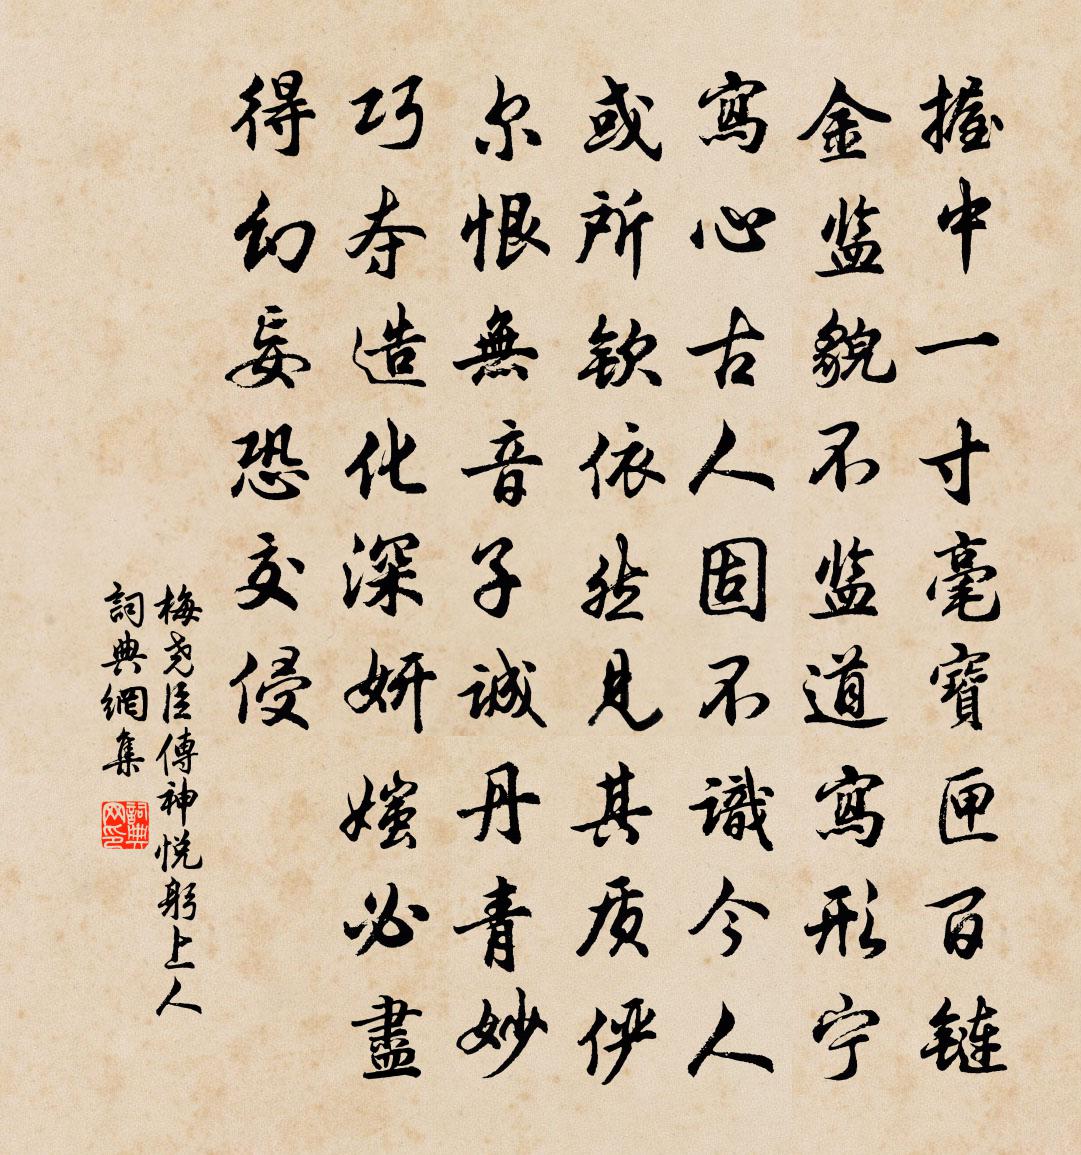 握中一寸毫寶匣百鏈
金监貌不监道寫形宁
寫心古人固不識今人
或所欽依然見其质俨
尔恨無音子诚丹青妙
巧夺造化深妍媸必盡
得幻妄恐交侵
梅尧臣傳神悦躬上人
詞典網集
詞典网印